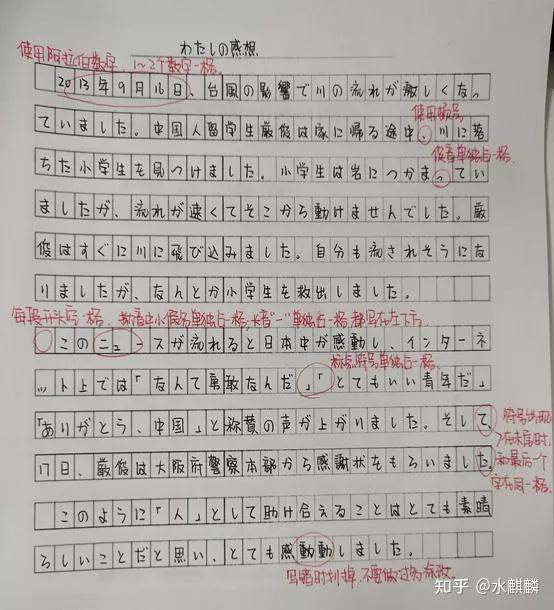 わたしの感想
使用阿拉伯数字,1~2个数字一格.
2013年9月16日、台風の影響で川の流れが激しくなっ
使用顿号
ていました。中国人留学生厳俊は家に帰る途中、川に落
促音单独占一格.
ちた小学生を見つけました。小学生は岩につかまってい
ましたが、流れが速くてそこから動けませんでした。厳
俊はすぐに川に飛び込みました。自分も流されそうにな
りましたが、なんとか小学生を救出しました。
每段开头后一格. 拗音中小假名单独占一格,长音"一"单独占一格,都写在左下方.
このニュースが流れると日本中が感動し、インターネ
标点符号单独占一格.
ット上では「なんて勇敢なんだ」「とてもいい青年だ」
「ありがとう、中国」と称賛の声が上がりました。そして、
符号出现
在末尾时,
和最后一个
字在同一格.
17日、厳俊は大阪府警察本部から感謝状をもらいました。
このように「人」として助け合えることはとても素晴
らしいことだと思い、とても感動動しました。
写错时划掉,不要做过多标改.
知乎 @水麒麟